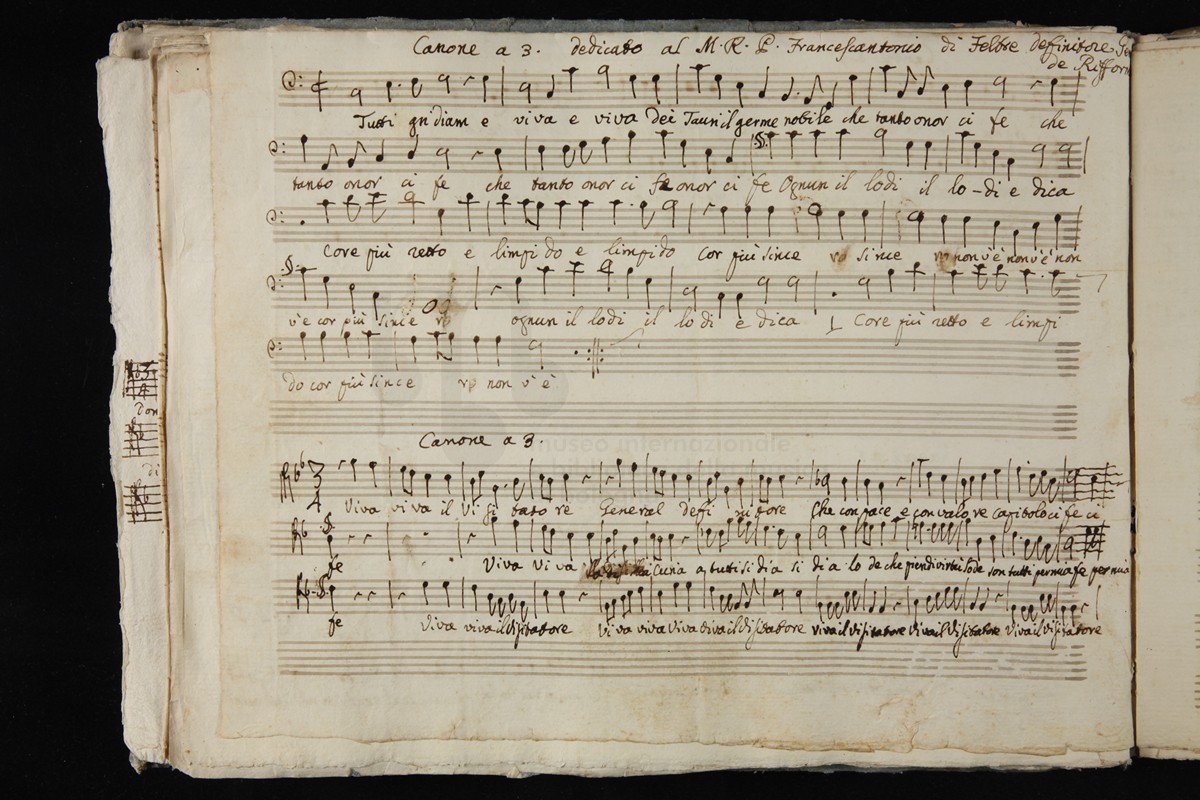 Canone a 3. dedicato al M. R. P. Francescantonio di Feltre definitore
de Rifform
Tutti gridiam e viva e viva dei Taun il germe nobile che tanto onor ci fe che
tanto onor ci fe che tanto onor ci fe onor ci fe Ognun il lodi il lo-di e dica
Core più retto e limpi do e limpido cor più since ro since ro non v'è non v'è non
v'è cor più since ro ognun il lodi il lo di e dica Core più retto e limpi
do cor più since ro non v è
Canone a 3.
don
di
3
4
Viva vi va il Vi si tato re General defi nitore Che con pace e con valo re capitolo ci fe ci
fe Viva Vi va cuna a tutti si dia si di a lo de che pien di virtù lode son tutti per nua fe per nua
fe Viva viva il Visitatore Vi va viva Viva Viva il Visitatore viva il Visitatore Viva il Visitatore Viva il Visitatore
museo internazionale